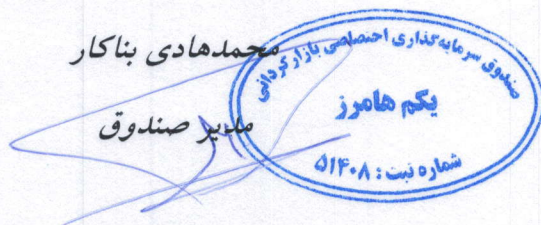 محمدهادی بناکار
مدیر صندوق
صندوق سرمایه‌گذاری اختصاصی بازارگردانی
یکم هامرز
شماره ثبت : ۵۱۴۰۸